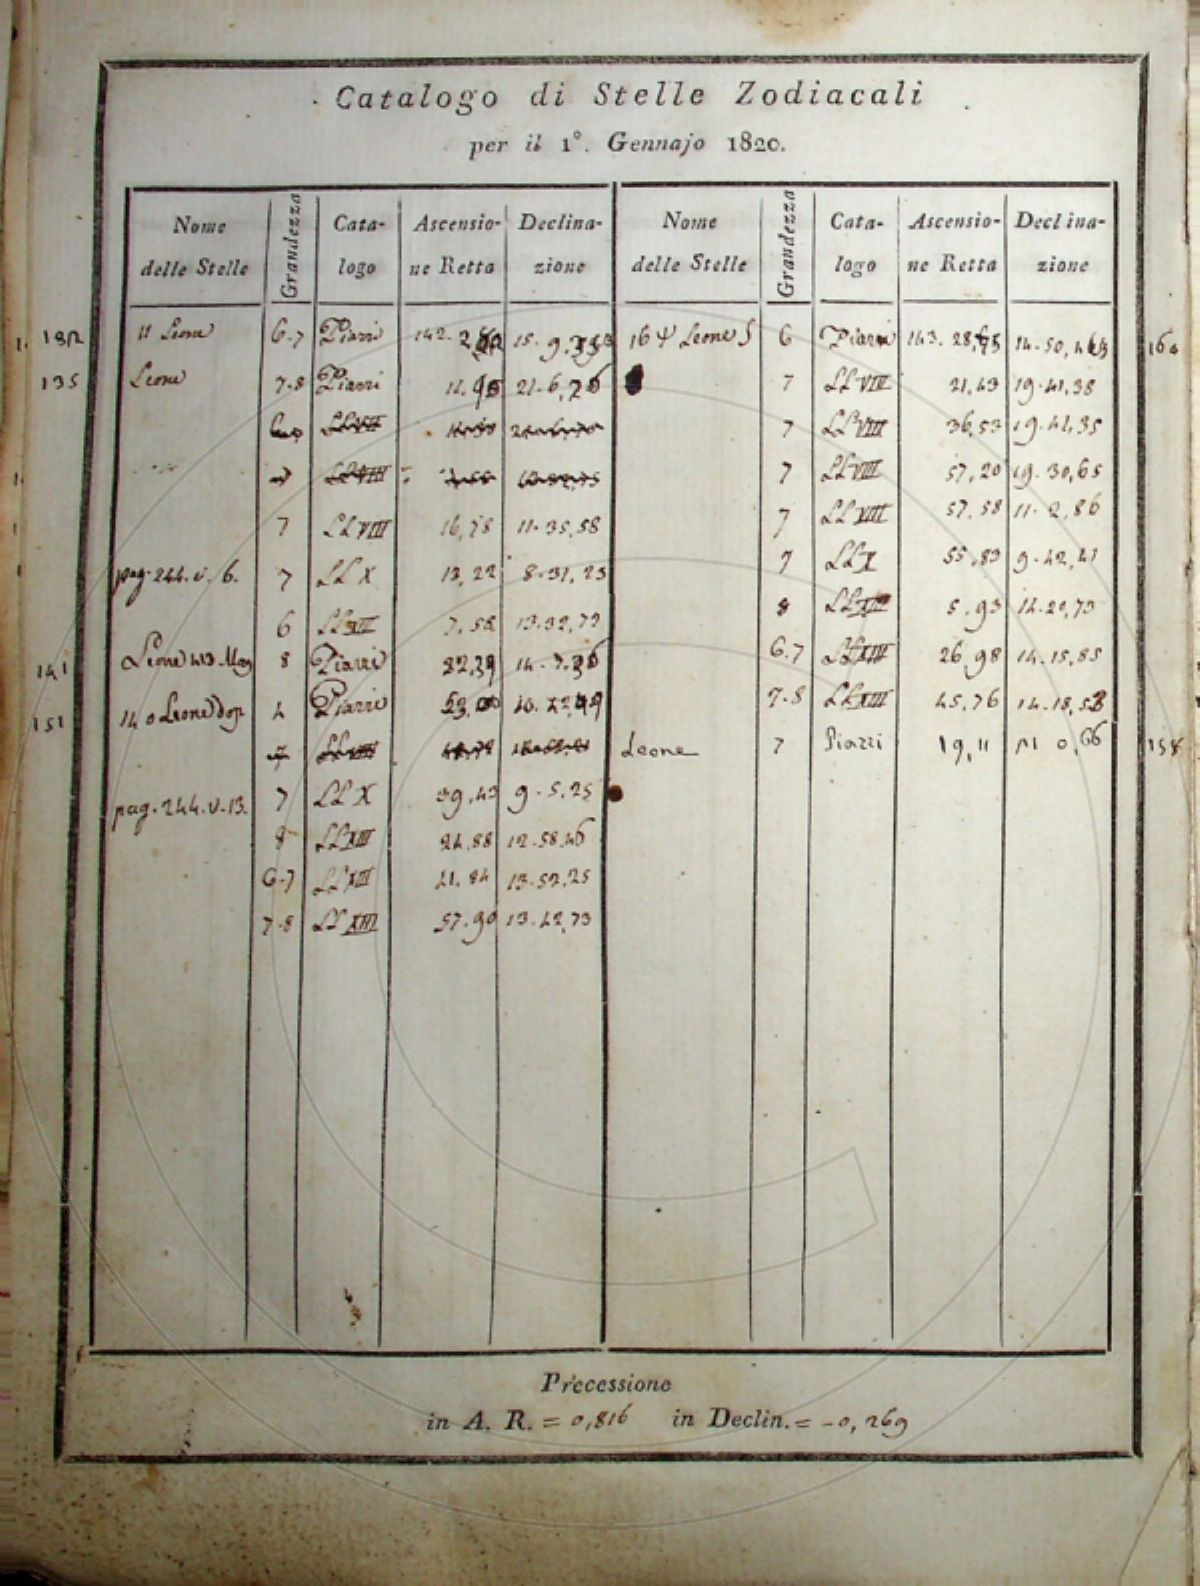 Catalogo di Stelle Zodiacali
per il 1°. Gennajo 1820.
Nome delle Stelle Grandezza Catalogo Ascensione Retta Declinazione
Nome delle Stelle Grandezza Catalogo Ascensione Retta Declinazione
132 11 Leone 6.7 Piazzi 142. 15. 9.
135 Leone 7.8 Piazzi 21.6,26
7 LL VIII 16,78 11. 35,58
pag. 244. v. 6. 7 LL X 13,22 8.31,23
6 7.58 13.32,72
141 Leone 8 Piazzi 14.
151 14 o Leone dop. 4 Piazzi
pag. 244. v. 13. 7 LL X 39,43 9. 5,25
8 LL XIII 24,88 12.58,46
6.7 LL XIII 41,84 13.52,25
7.8 LL XIII 57.90 13.42,73
16 Ψ Leone 6 Piazzi 143. 28, 14.50, 160
7 LL VIII 21,43 19.41,38
7 LL VIII 36,53 19.41,35
7 LL VIII 57,20 19.30,65
7 LL VIII 57,58 11. 2,86
7 LL X 55,83 9.42,41
8 LL XIII 5,93 14.20,73
6.7 LL XIII 26,98 14.15,85
7.8 LL XIII 45,76 14.18,58
Leone 7 Piazzi 19,11 0,66 158
Precessione
in A. R. = 0,816 in Declin. = -0,269